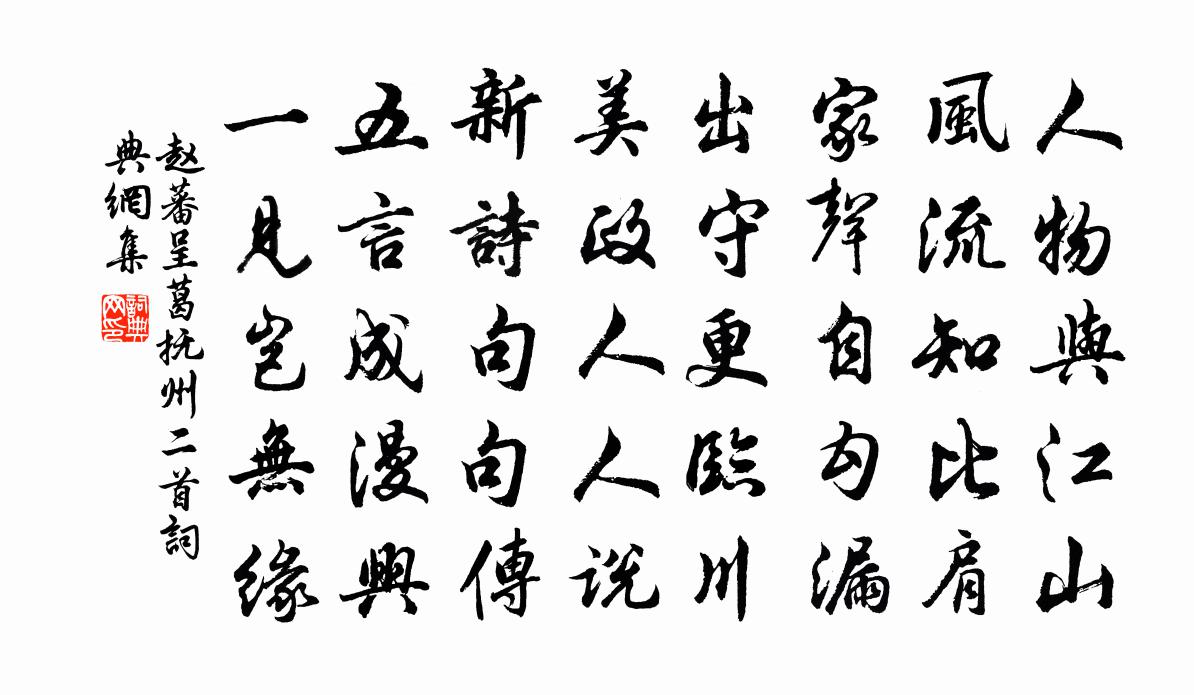 人物與江山
風流知比肩
家聲自勾漏
出守更臨川
美政人人說
新詩句句傳
五言成漫興
一見豈無緣
赵蕃呈葛抚州二首詞
典網集
詞典
网印